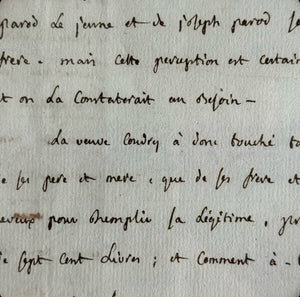 parod Le jeune et de joseph parod sa
frere. mais cette perception est certain
t on La Constaterait au Besoin —
La veuve Coudry à donc touché ta
e ses pere et mere, que de ses frere et
neveux pour Remplir sa Légitime,
e sept cent Livres ; et Comment a-t